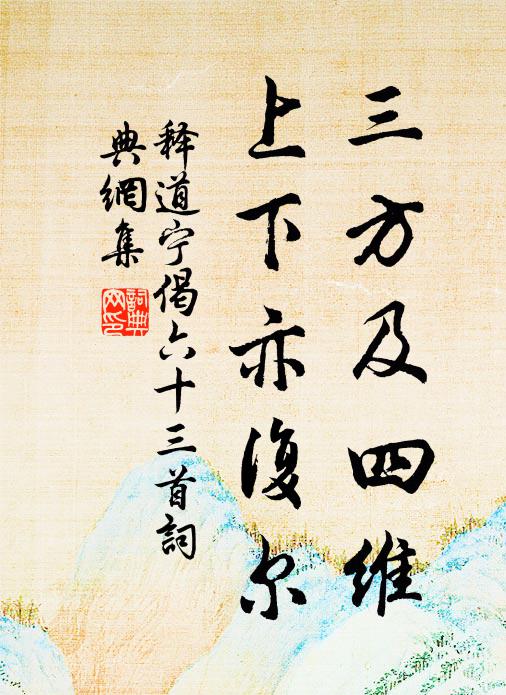 三方及四维
上下亦復尔
释道宁偈六十三首詞
典網集
詞典
网印